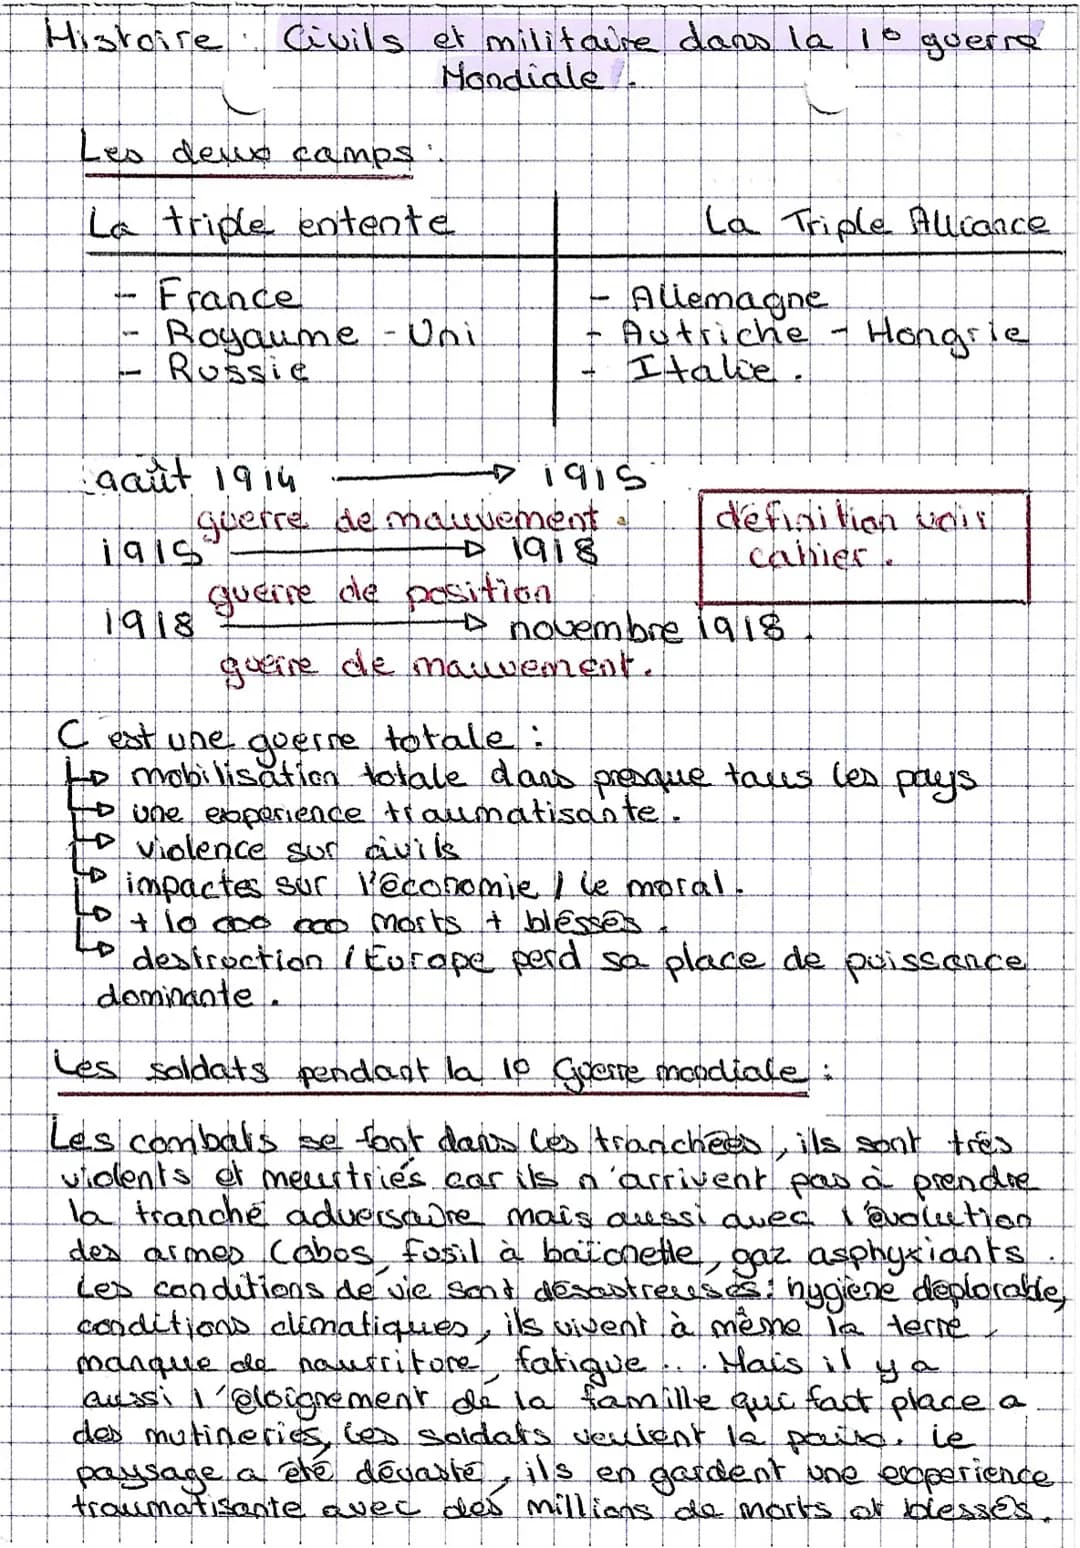 Histoire : Civils et militaire dans la 1° guerre
Mondiale.
Les deux camps :
La triple entente
La Triple Alliance
- France
- Allemagne
- Royaume - Uni
- Autriche - Hongrie
- Russie
- Italie.
août 1914 → 1915
guerre de mouvement.
définition voir
1915 → 1918
cahier.
guerre de position
1918 → novembre 1918.
guerre de mouvement.
C est une guerre totale :
↳ mobilisation totale dans presque tous les pays
↳ une experience traumatisante.
↳ violence sur civils
↳ impactes sur l'économie / le moral.
↳ + 10 000 000 morts + bléssés.
↳ destruction / Europe perd sa place de puissance
dominante.
Les soldats pendant la 1° Guerre mondiale :
Les combats se font dans les tranchées, ils sont très
violents et meurtriés car ils n'arrivent pas à prendre
la tranché adversaire mais aussi avec l'évolution
des armes (obus, fusil à baïonette, gaz asphyxiants.
Les conditions de vie sont désastreuses : hygiène déplorable,
conditions climatiques, ils vivent à même la terre,
manque de nourriture, fatigue ... Mais il y a
aussi l'éloignement de la famille qui fait place a
des mutineries, les soldats veulent la paix. Le
paysage a été dévasté, ils en gardent une experience
traumatisante avec des millions de morts et blessés.